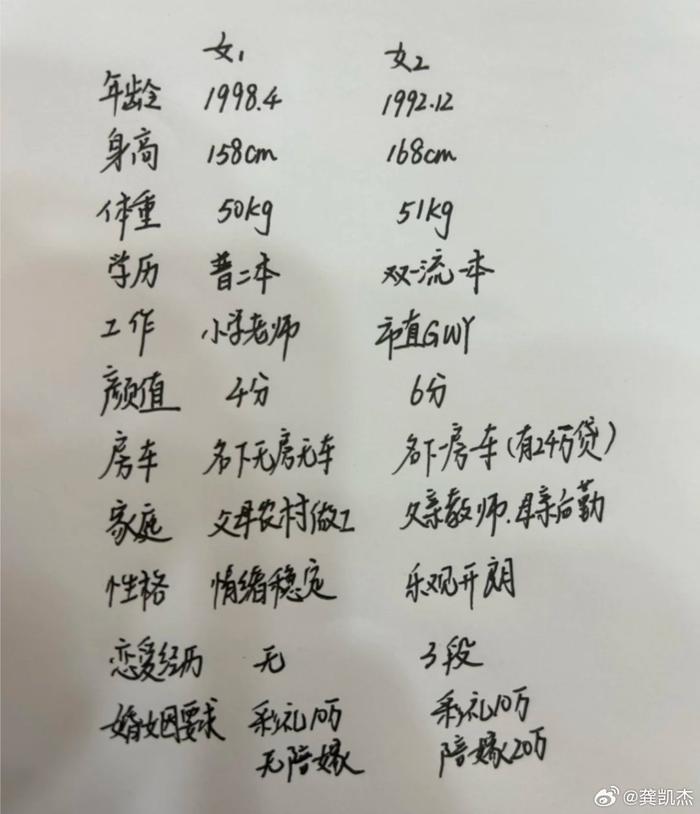 女1 女2
年龄 1998.4 1992.12
身高 158cm 168cm
体重 50kg 51kg
学历 普二本 双一流一本
工作 小学老师 市直GWY
颜值 4分 6分
房车 名下无房无车 名下一房一车(有24万贷)
家庭 父母农村做工 父亲教师.母亲后勤
性格 情绪稳定 乐观开朗
恋爱经历 无 3段
婚姻要求 彩礼10万 彩礼10万
无陪嫁 陪嫁20万
@龚凯杰